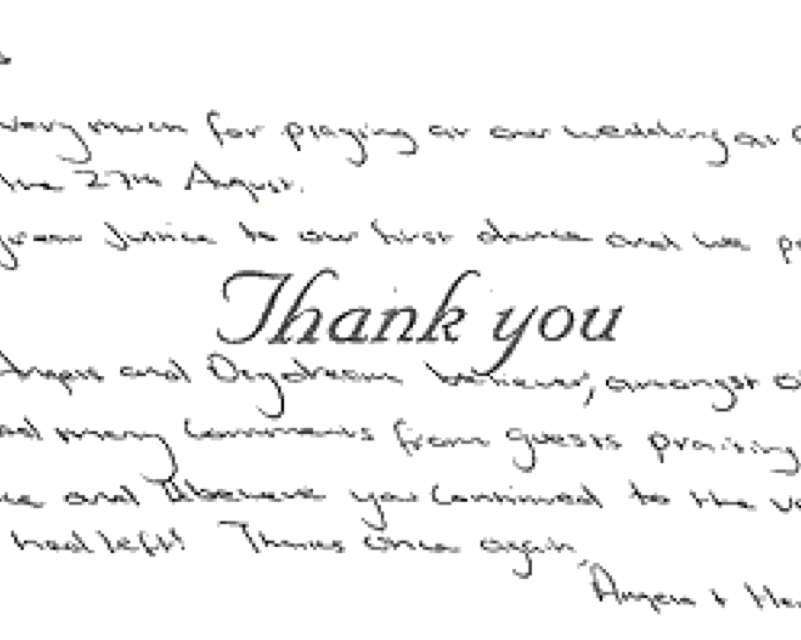 very much for playing at our wedding at
the 27th August.
great justice to our first dance and we
Thank you
Angels and Daydream believer, amongst
many comments from guests praising
and I believe you continued to the
had left! Thanks once again,
Angela &